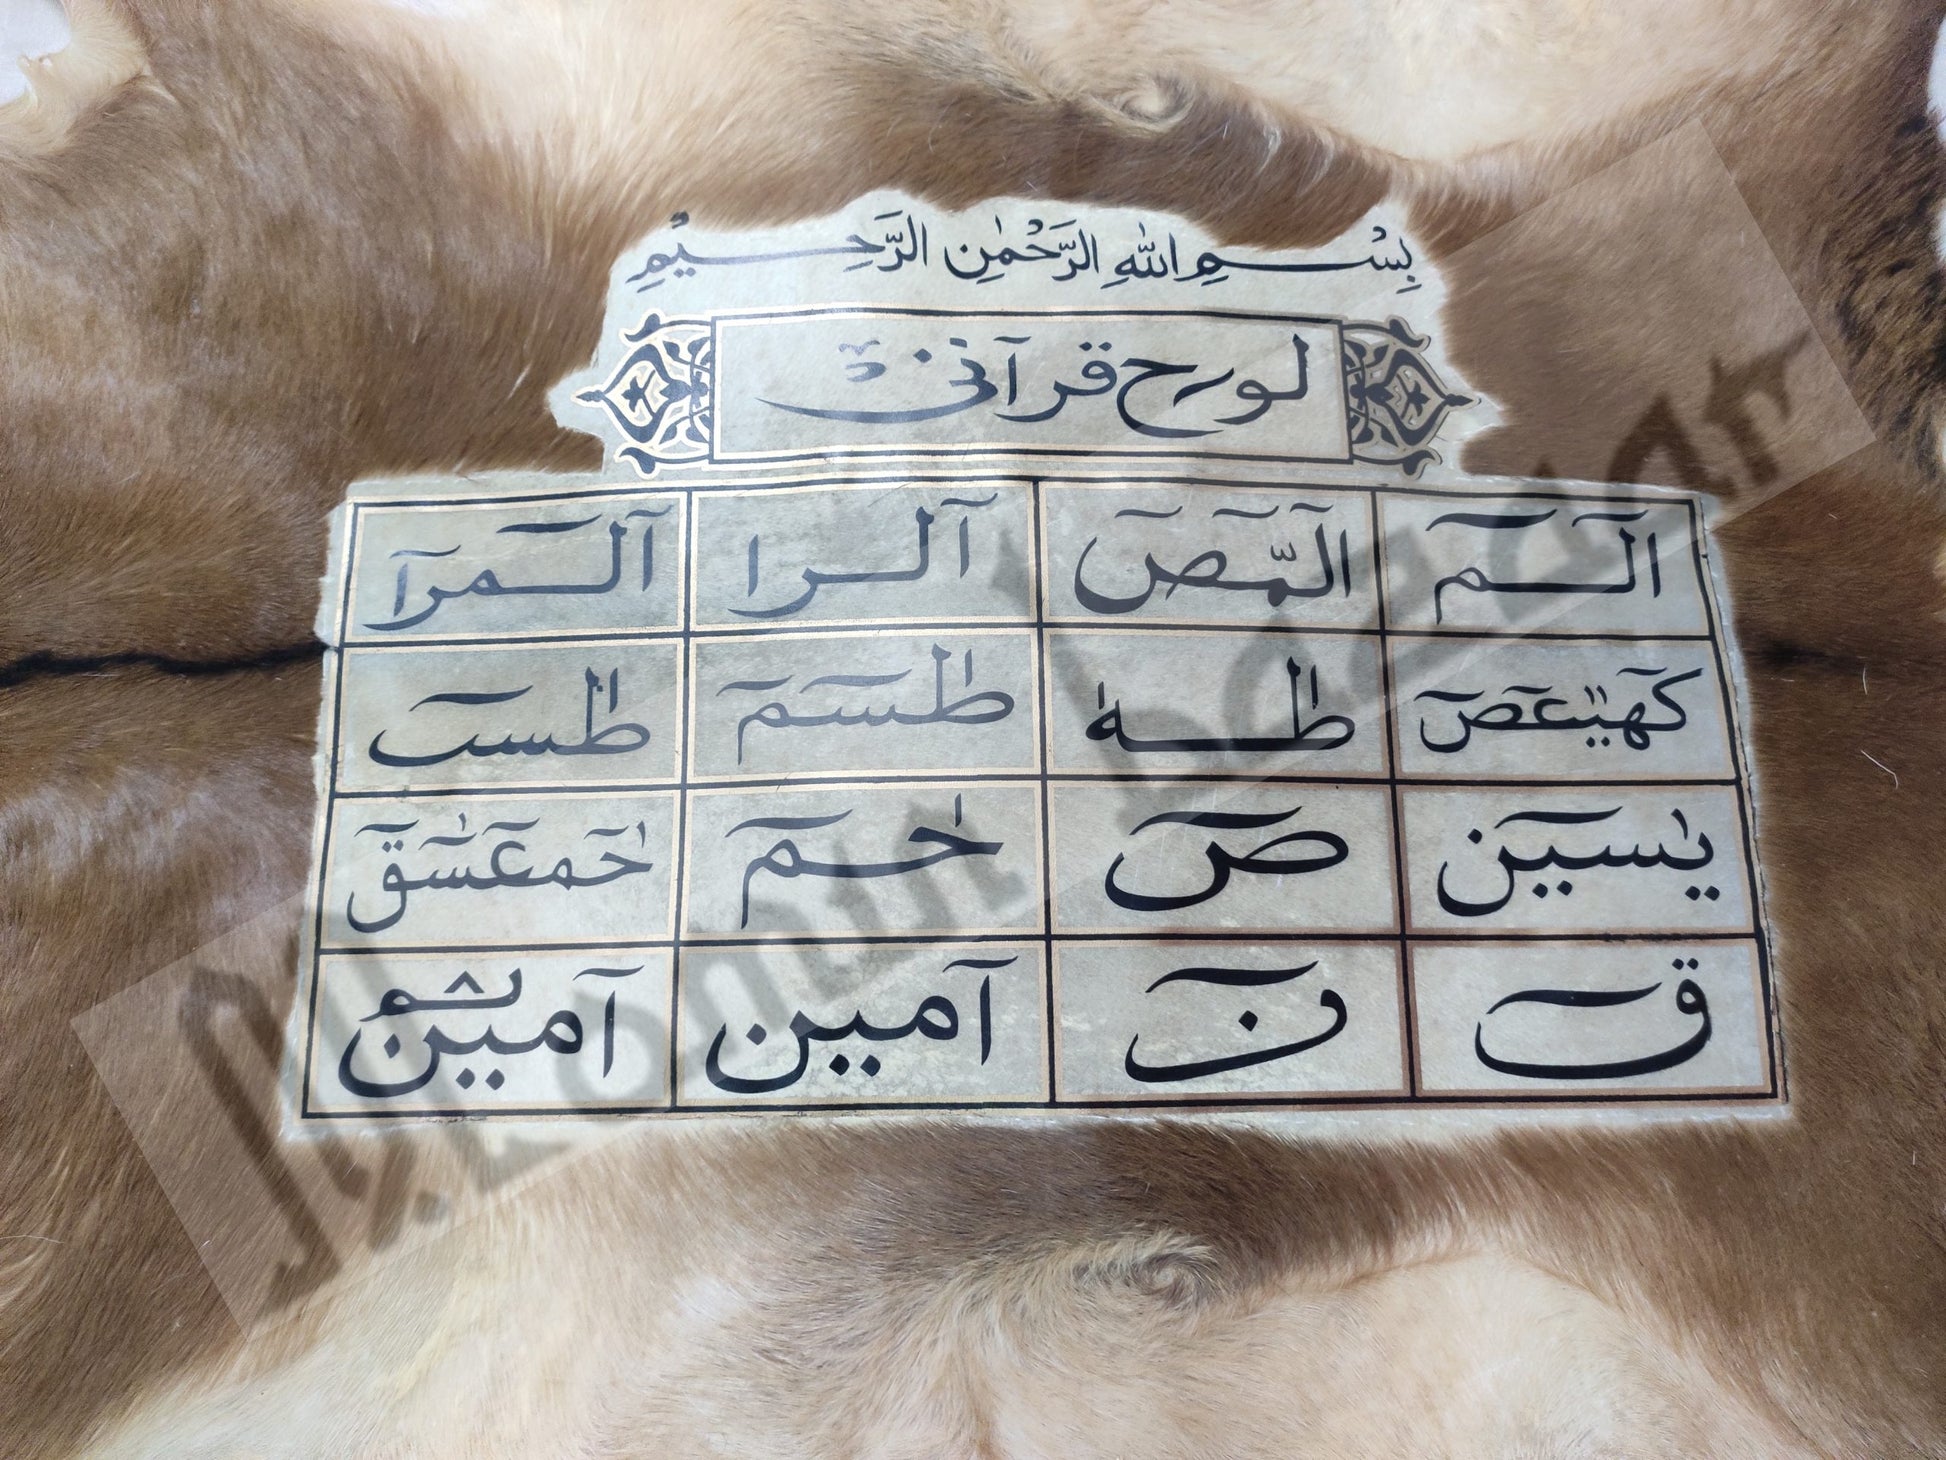 بِسْمِ اللّٰهِ الرَّحْمٰنِ الرَّحِيْمِ
لوح قرآنی
الٓمٓ الٓمّٓصٓ الٓرا الٓمٓرا
كٓهٰیٰعٓصٓ طٰهٰ طٰسٓمٓ طٰسٓ
یٰسٓیٓن صٓ حٰمٓ حٰمٓعٓسٓقٓ
قٓ نٓ آمین آمین